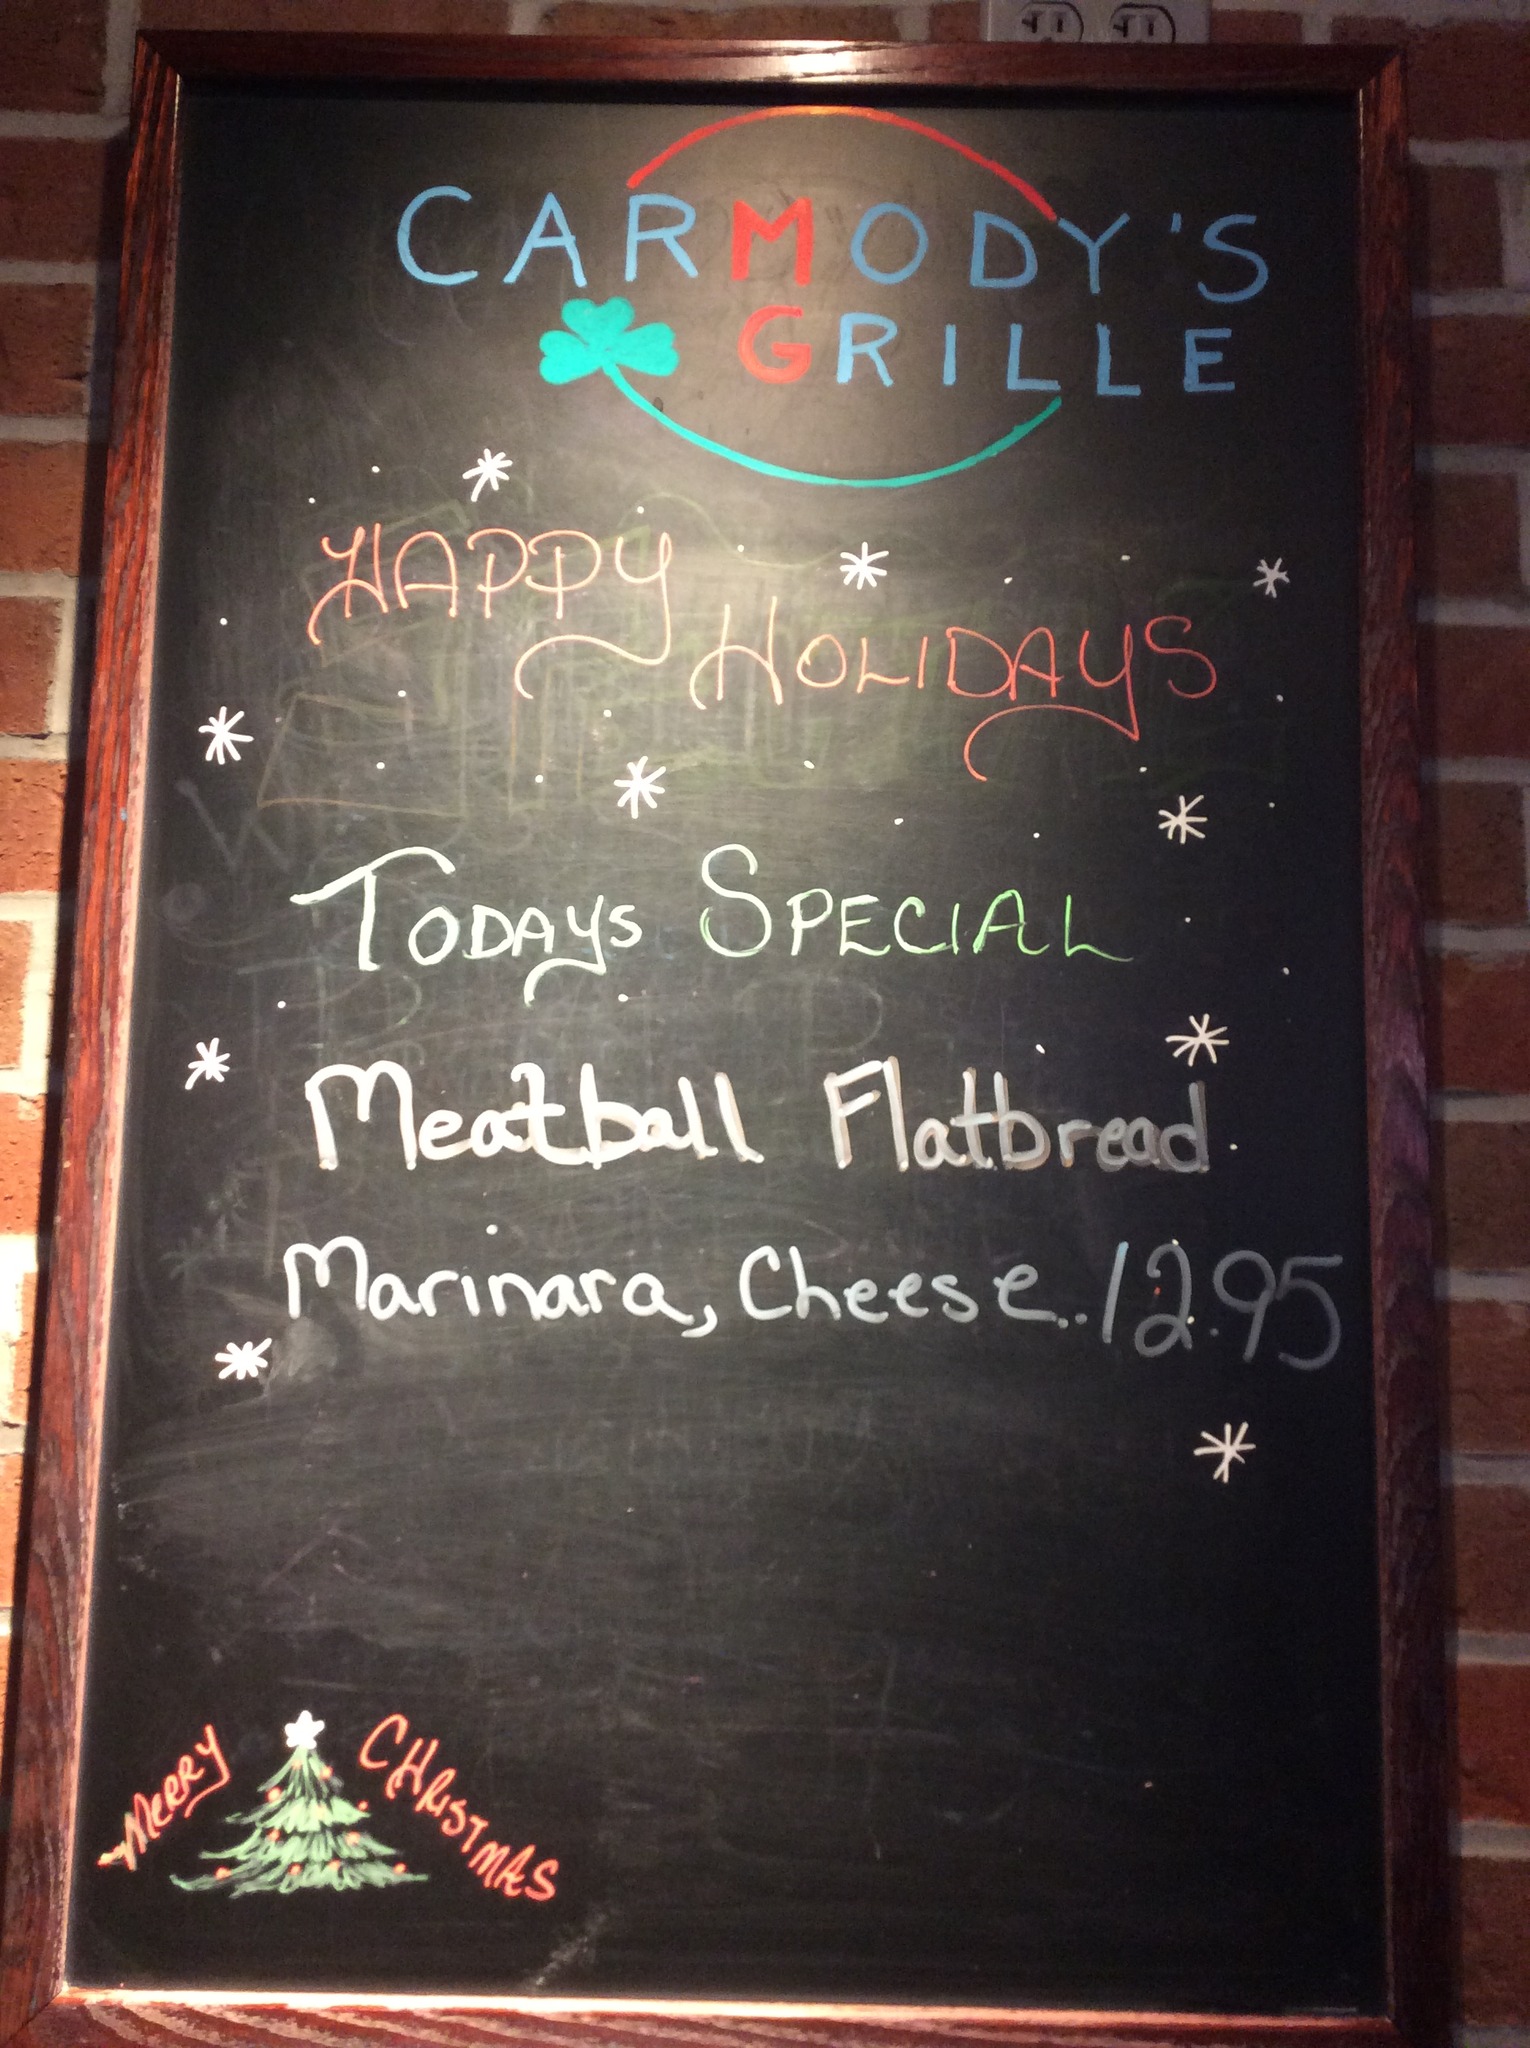 CARMODY'S
GRILLE
HAPPY
HOLIDAYS
TODAYS SPECIAL
Meatball Flatbread
Marinara, Cheese..12.95
MERRY CHRISTMAS